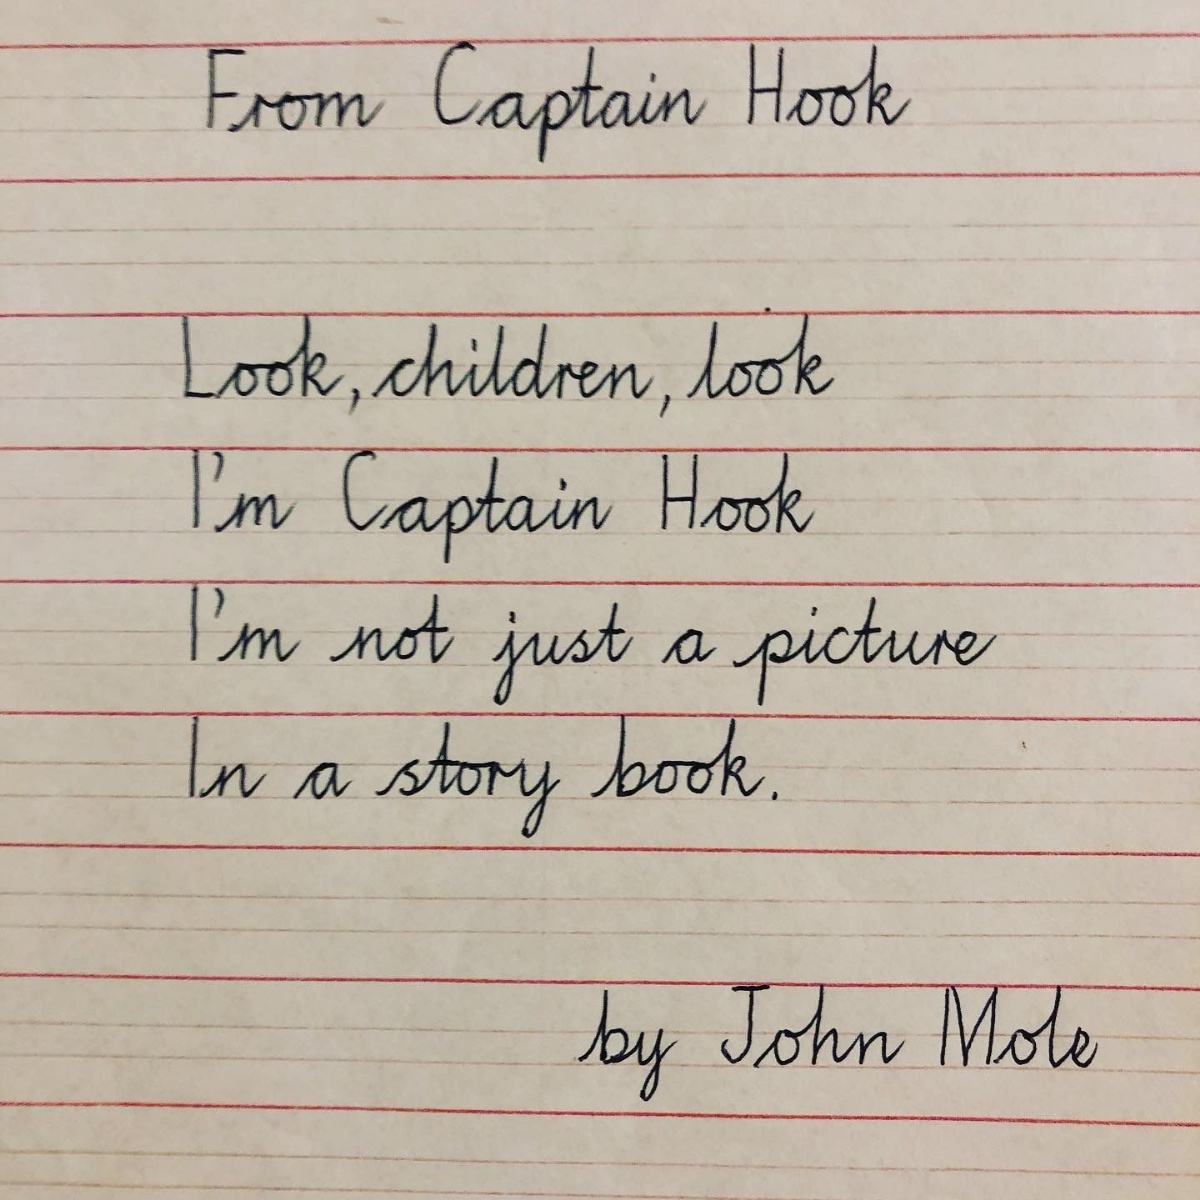 From Captain Hook
Look, children, look
I'm Captain Hook
I'm not just a picture
In a story book.
by John Mole